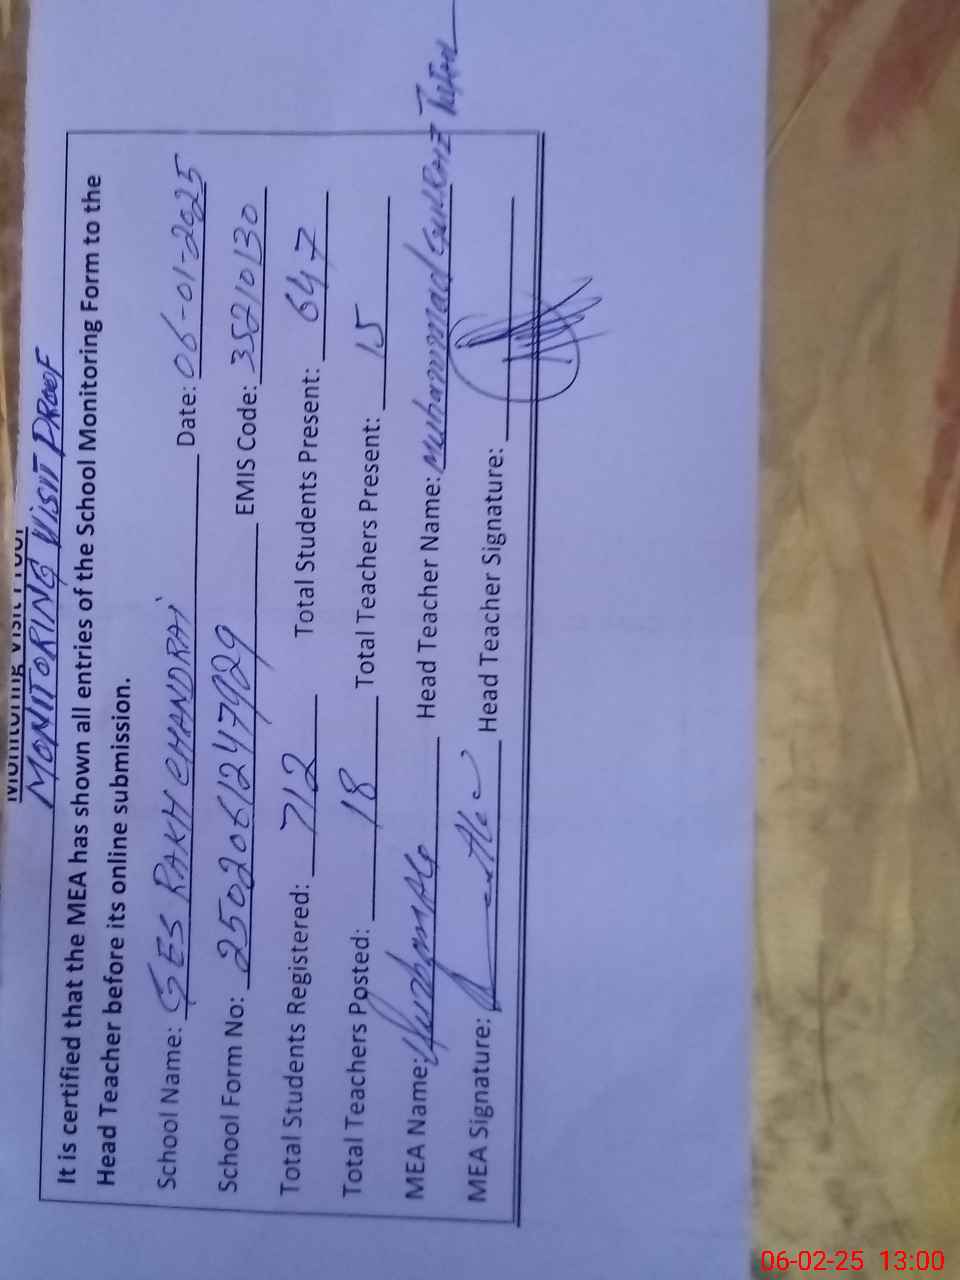 Monitoring Visit Proof
MONITORING VISIT PROOF
It is certified that the MEA has shown all entries of the School Monitoring Form to the
Head Teacher before its online submission.
School Name: GES RAKH CHANDRAI Date: 06-01-2025
School Form No: 2502061247929 EMIS Code: 35210130
Total Students Registered: 712 Total Students Present: 647
Total Teachers Posted: 18 Total Teachers Present: 15
MEA Name: Head Teacher Name: Muhammad
MEA Signature: Head Teacher Signature:
06-02-25 13:00